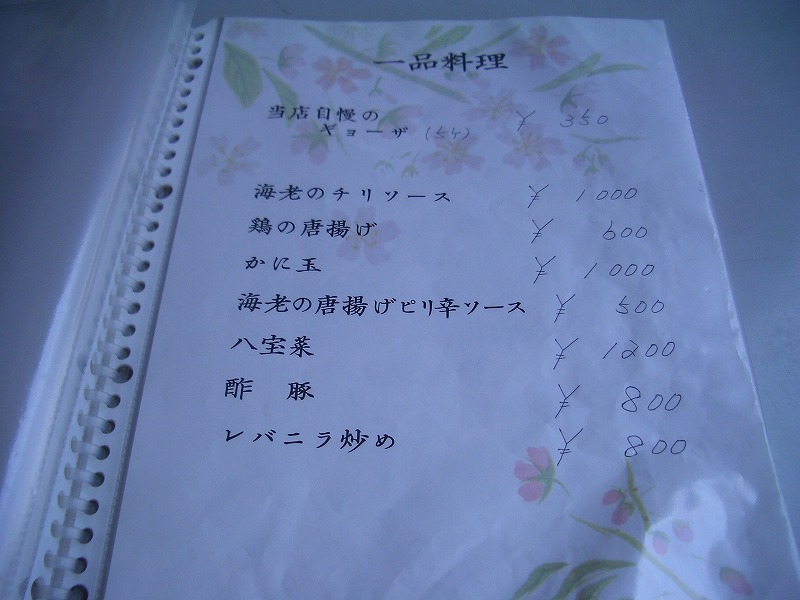 一品料理
当店自慢の
ギョーザ (5ケ) ¥ 350
海老のチリソース ¥ 1000
鶏の唐揚げ ¥ 600
かに玉 ¥ 1000
海老の唐揚げピリ辛ソース ¥ 500
八宝菜 ¥ 1200
酢 豚 ¥ 800
レバニラ炒め ¥ 800